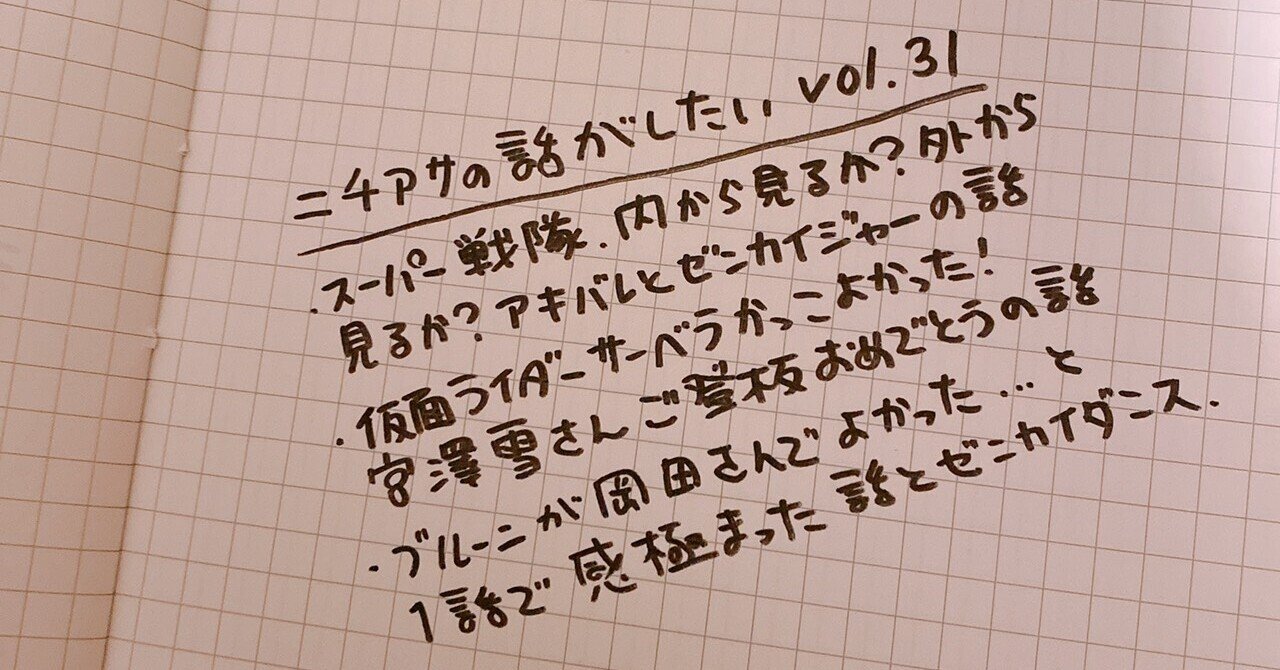 ニチアサの話がしたい vol.31
・スーパー戦隊、内から見るか?外から
見るか?アキバレとゼンカイジャーの話
・仮面ライダーサーベラかっこよかった!
宮澤雪さんご登板おめでとうの話
・ブルーンが岡田さんでよかった…と
1話で感極まった話とゼンカイダンス.